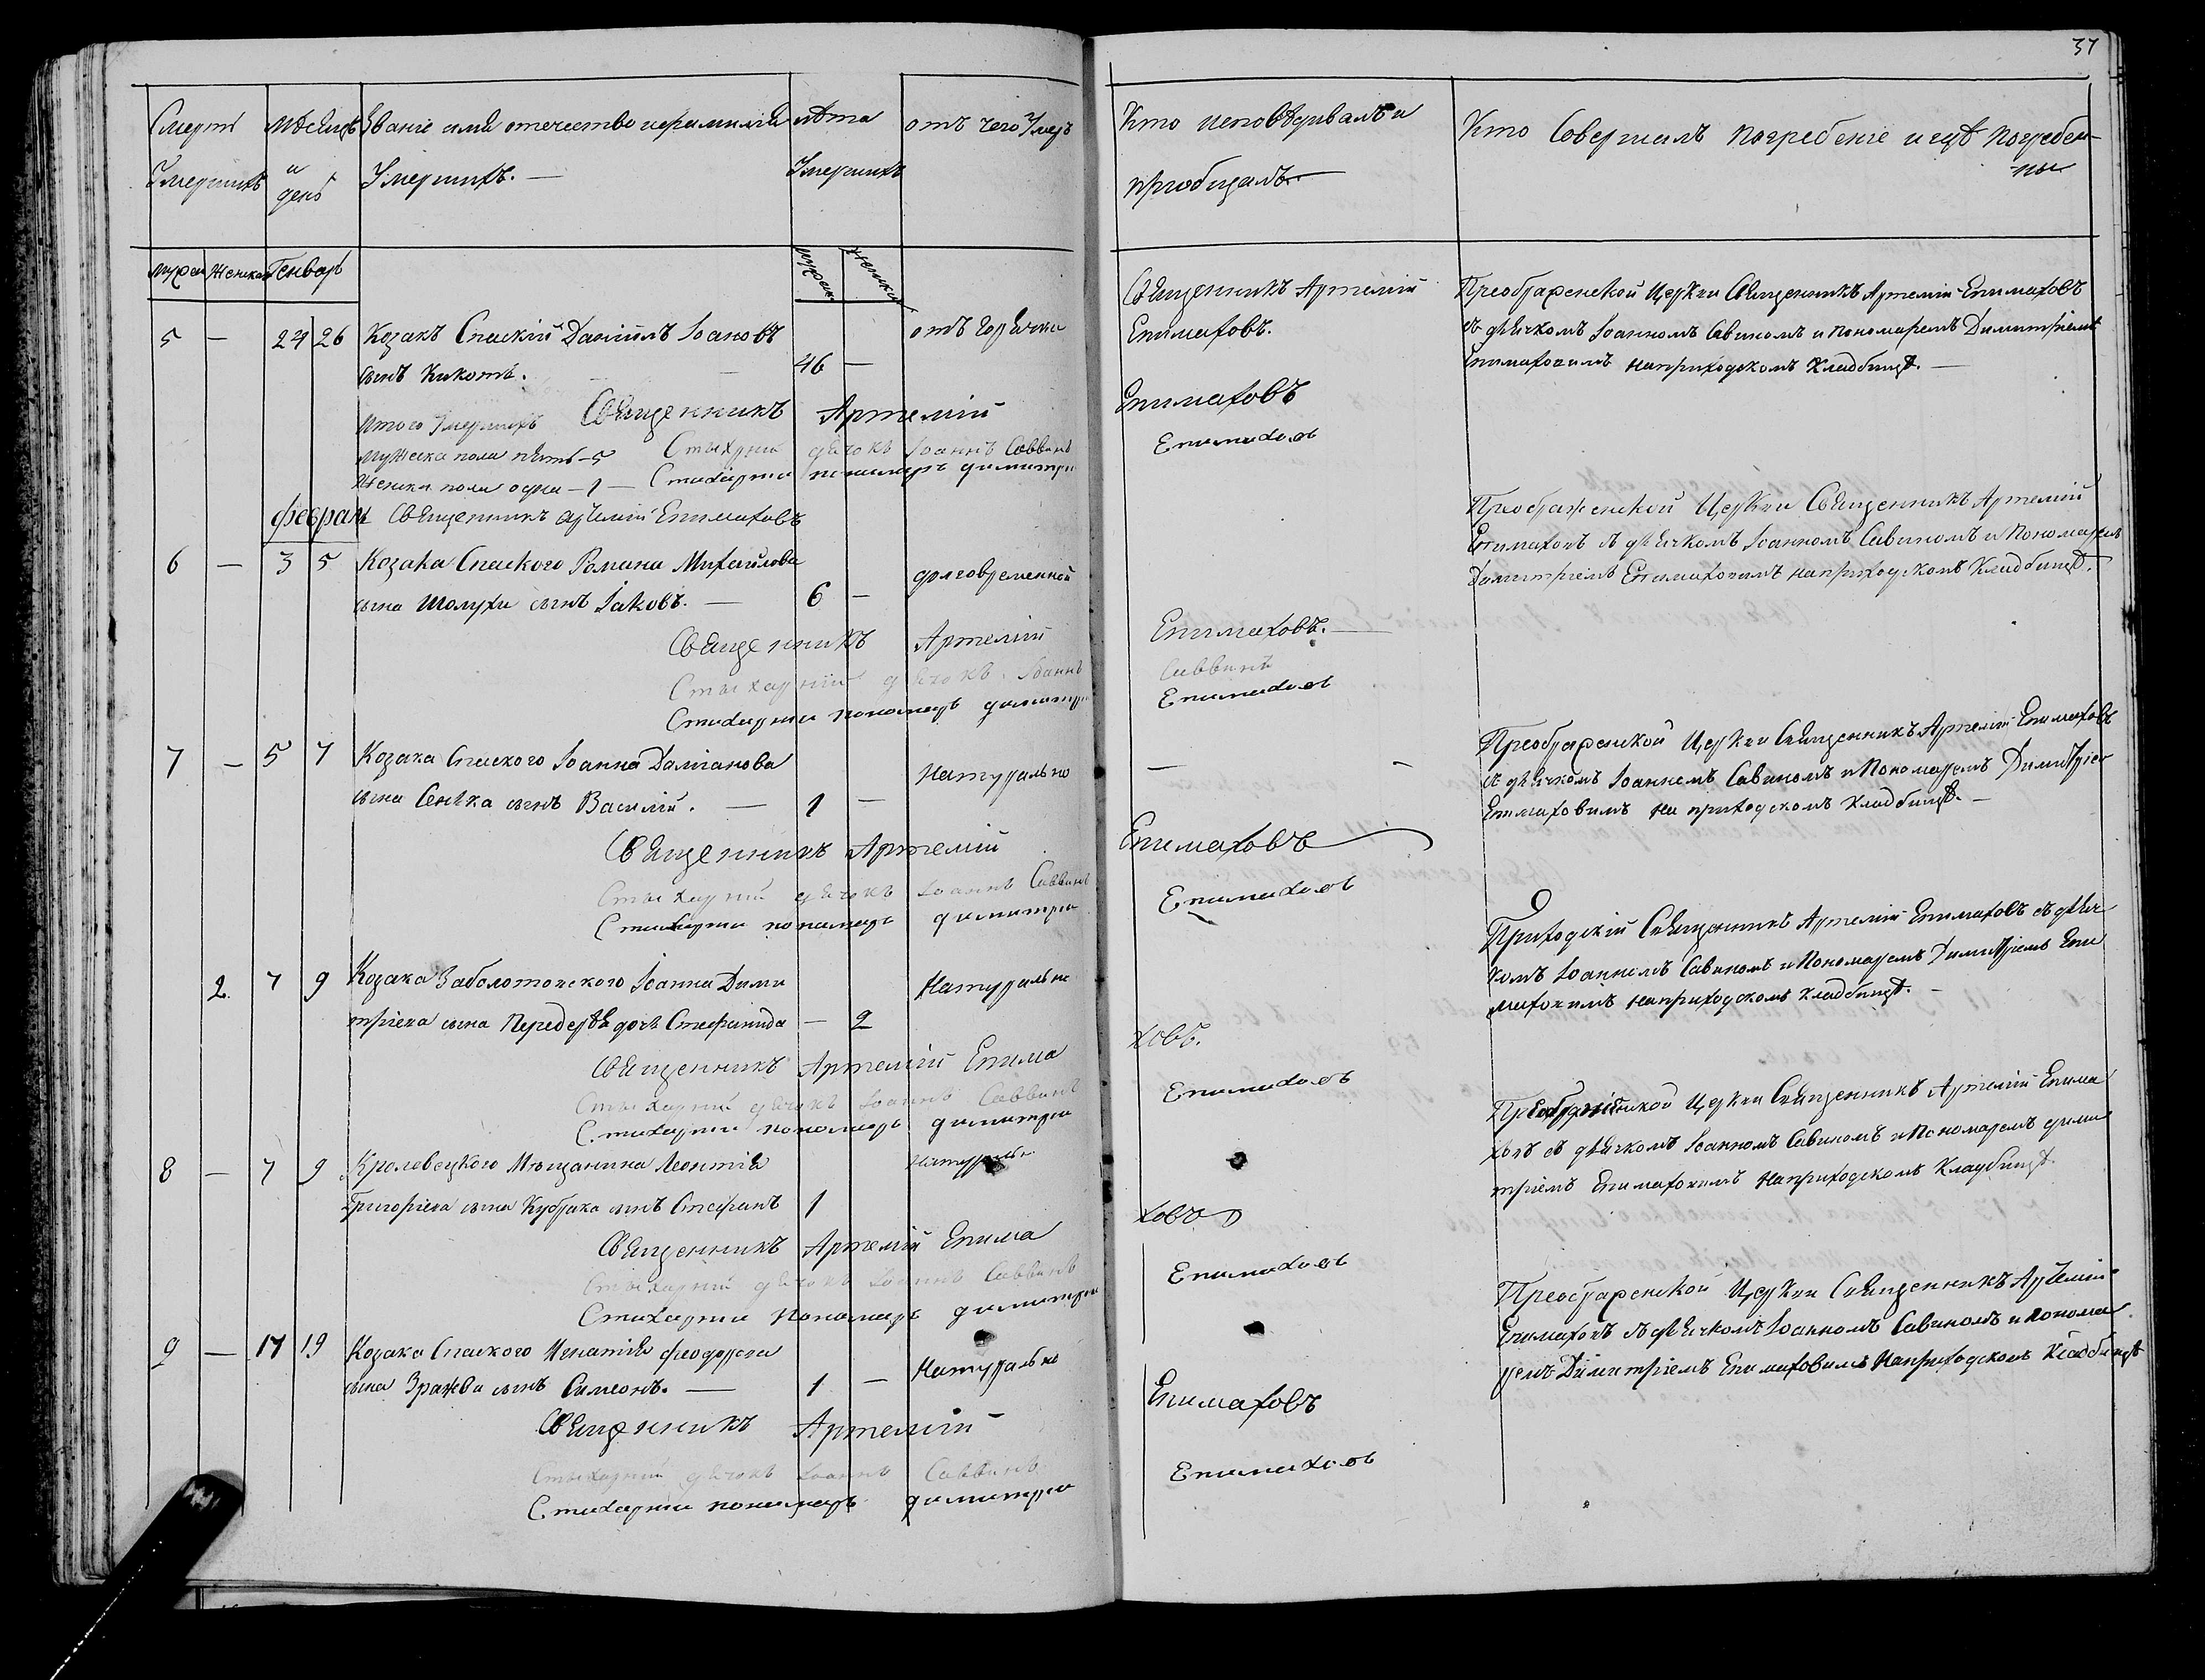 37
Смерть Умершихъ
Мѣсяцъ и день
Званіе имя отечество и фамилія Умершихъ. —
лѣта Умершихъ
отъ чего Умеръ
Кто исповѣдивалъ и пріобщалъ. —
Кто Совершалъ погребеніе и гдѣ погребен-
ны
мужеск Женска Генвар
мужеск женска
5 — 24 26 Козакъ Спаскій Даніилъ Іоановъ
сынъ Кикоть. — 46 —
отъ Горячки
Священникъ Артемій
Епимаховъ.
Преображенской Церкви Священникъ Артемій Епимаховъ
съ дьячкомъ Іоанномъ Савиномъ и пономаремъ Димитріемъ
Епимаховимъ наприходскомъ кладбищѣ. —
Итого Умершихъ Священникъ Артемій Епимаховъ
мужеска пола пять – 5 Стихарний дьячокъ Іоаннъ Саввинъ
Женска пола одна – 1 – Стихарни пономаръ димитри Епимахов
февраль Священникъ Артемій Епимаховъ
6 — 3 5 Козака Спаского Романа Михайлова
сына Шолухи сынъ Іаковъ. — 6 —
долговременной
Преображенской Церкви Священникъ Артемій
Епимаховъ съ дьячкомъ Іоанномъ Савиномъ и Пономаремъ
Димитріемъ Епимаховимъ наприходскомъ Кладбищѣ.
Священникъ Артемій Епимаховъ. —
Стыхарній дьячокъ Іоаннъ Саввинъ
Стихарни пономаръ димитри Епимахов
7 — 5 7 Козака Спаского Іоанна Даміанова
сына Сенька сынъ Василій. — 1 —
Натурально
— —
Преображенской Церкви Священникъ Артемій Епимаховъ
съ дьячкомъ Іоанномъ Савиномъ и Пономаремъ Димитріем
Епимаховимъ на приходскомъ Кладбищѣ. —
Священникъ Артемій Епимаховъ
Стыхарний дьячокъ Іоаннъ Саввинъ
Стихарни пономаръ димитри Епимахов
2. 7 9 Козака Заболотовского Іоанна Дими
тріева сына Передерѣя дочь Стефанида — 2
Натурально
Приходскій Священникъ Артемій Епимаховъ съ дьяч
комъ Іоанномъ Савиномъ и Пономаремъ Димитріемъ Епи
маховимъ наприходскомъ кладбищѣ. —
Священникъ Артемій Епима ховъ.
Стыхарний дьячокъ Іоаннъ Саввинъ
Стихарни пономаръ димитри Епимахов
8 — 7 9 Кролевецкого Мѣщанина Леонтія
Григоріева сына Кубрака сынъ Стефанъ 1
Натурально
Преображенской Церкви Священникъ Артемій Епима
ховъ съ дьячкомъ Іоанномъ Савиномъ и Пономаремъ дими
тріемъ Епимаховимъ Наприходскомъ Кладбищѣ.
Священникъ Артемій Епима ховъ
Стыхарний дьячокъ Іоаннъ Саввинъ
Стихарни Пономаръ димитри Епимахов
9 — 17 19 Козака Спаского Игнатія феодорова
сына Зражва сынъ Симеонъ. — 1 —
Натурально
Преображенской Церкви Священникъ Артемій
Епимаховъ съ дьячкомъ Іоанномъ Савиномъ и понома
ремъ Димитріемъ Епимаховимъ Наприходском Кладбищѣ
Священникъ Артемій Епимаховъ
Стыхарний дьячокъ Іоаннъ Саввинъ
Стихарни пономаръ димитри Епимахов